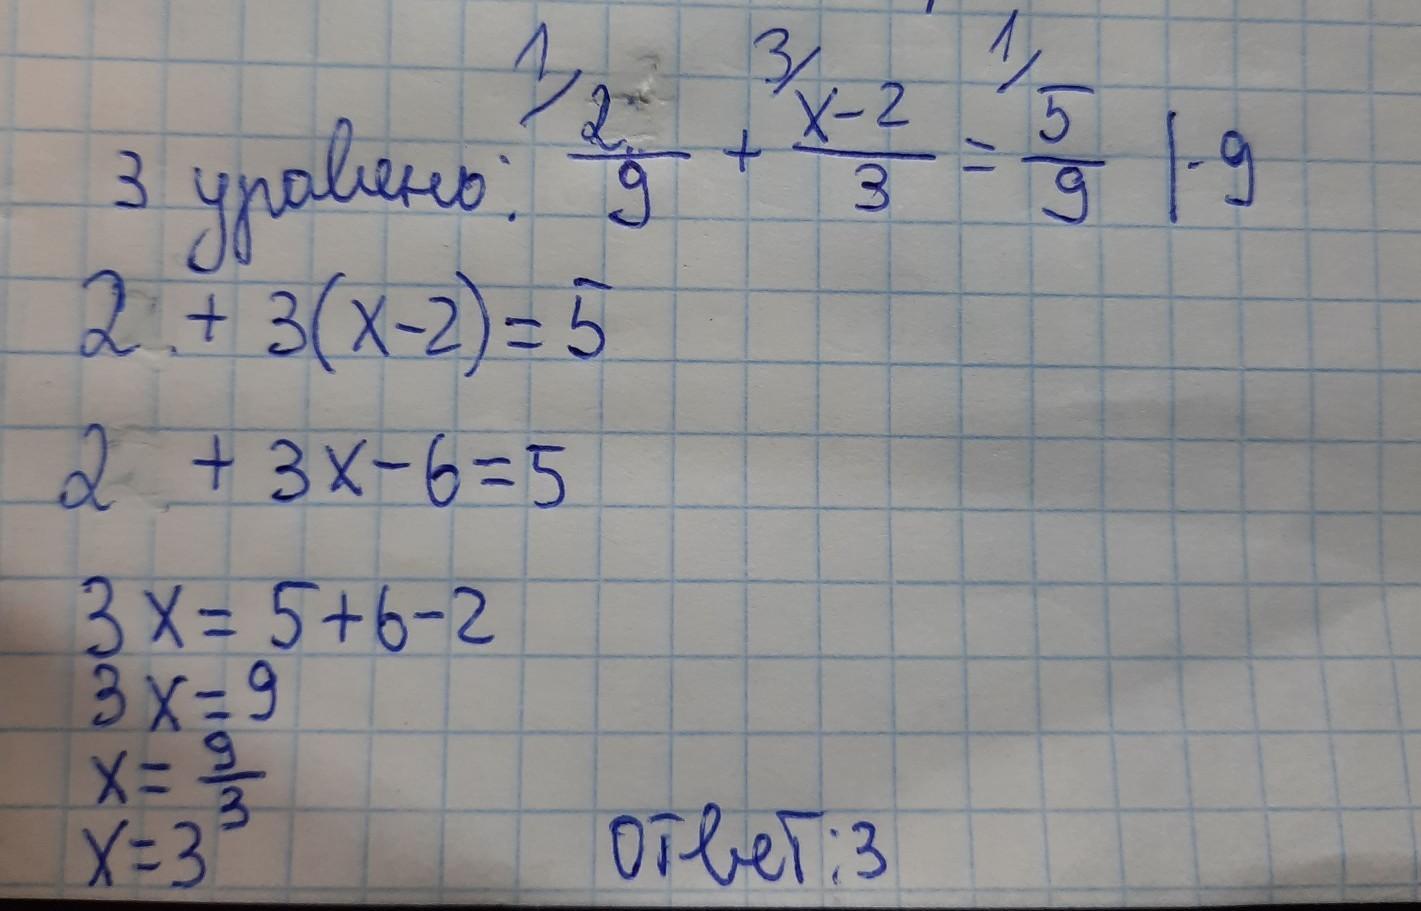 3 уровень: 1/ 2/9 + 3/ (x-2)/3 = 1/ 5/9 | · 9
2 + 3(x-2) = 5
2 + 3x - 6 = 5
3x = 5 + 6 - 2
3x = 9
x = 9/3
x = 3
ответ: 3